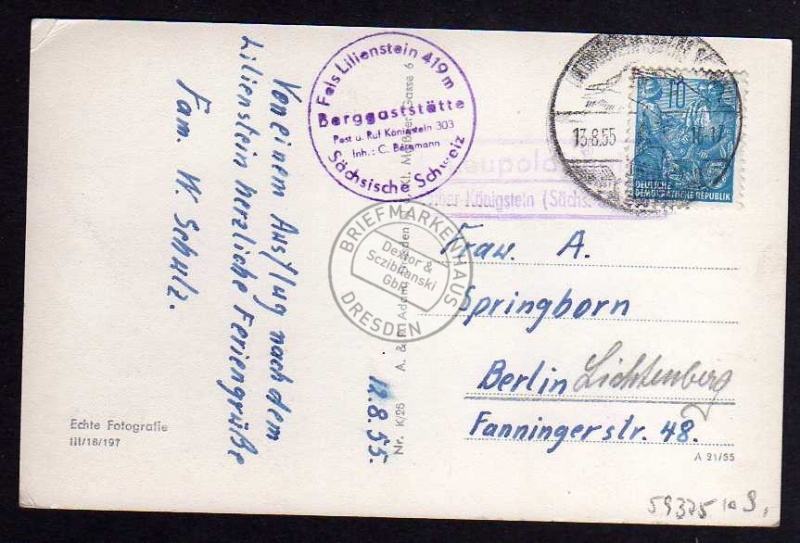 Von einem Ausflug nach dem
Lilienstein herzliche Feriengrüße
Fam. W. Schulz.
12.8.55.
Echte Fotografie
III/18/197
Fels Lilienstein 419 m
Berggaststätte
Post u. Ruf Königstein 303
Inh.: C. Bergmann
Sächsische Schweiz
Nr. K/26 A. & R. Adam, Dresden
Kl. Gasse 6
über Königstein (Sächs.
13.8.55
10
DEUTSCHE
DEMOKRATISCHE REPUBLIK
BRIEFMARKENHAUS
Dextor &
Sczibilanski
GbR
DRESDEN
Frau. A.
Springborn
Berlin Lichtenberg
Fanningerstr. 48.
A 21/55
59325 10 9,